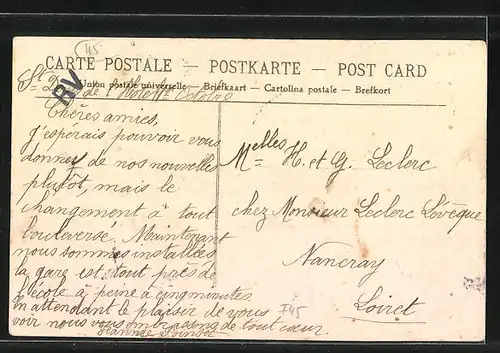 45
CARTE POSTALE - POSTKARTE - POST CARD
Union postale universelle - Briefkaart - Cartolina postale - Brefkort
RV
St D de l'Hôtel Octobre
Chères amies,
j'esperais pouvoir vous
donner de nos nouvelles
plutôt, mais le
changement à tout
bouleversé. Maintenant
nous sommes installées
la gare est tout près de
l'école à peine à cinq minutes
En attendant le plaisir de vous
voir nous vous embrassons de tout cœur.
Jeanne
Melles H. et G. Leclerc
chez Monsieur Leclerc Lévêque
Nancray
Loiret
F45